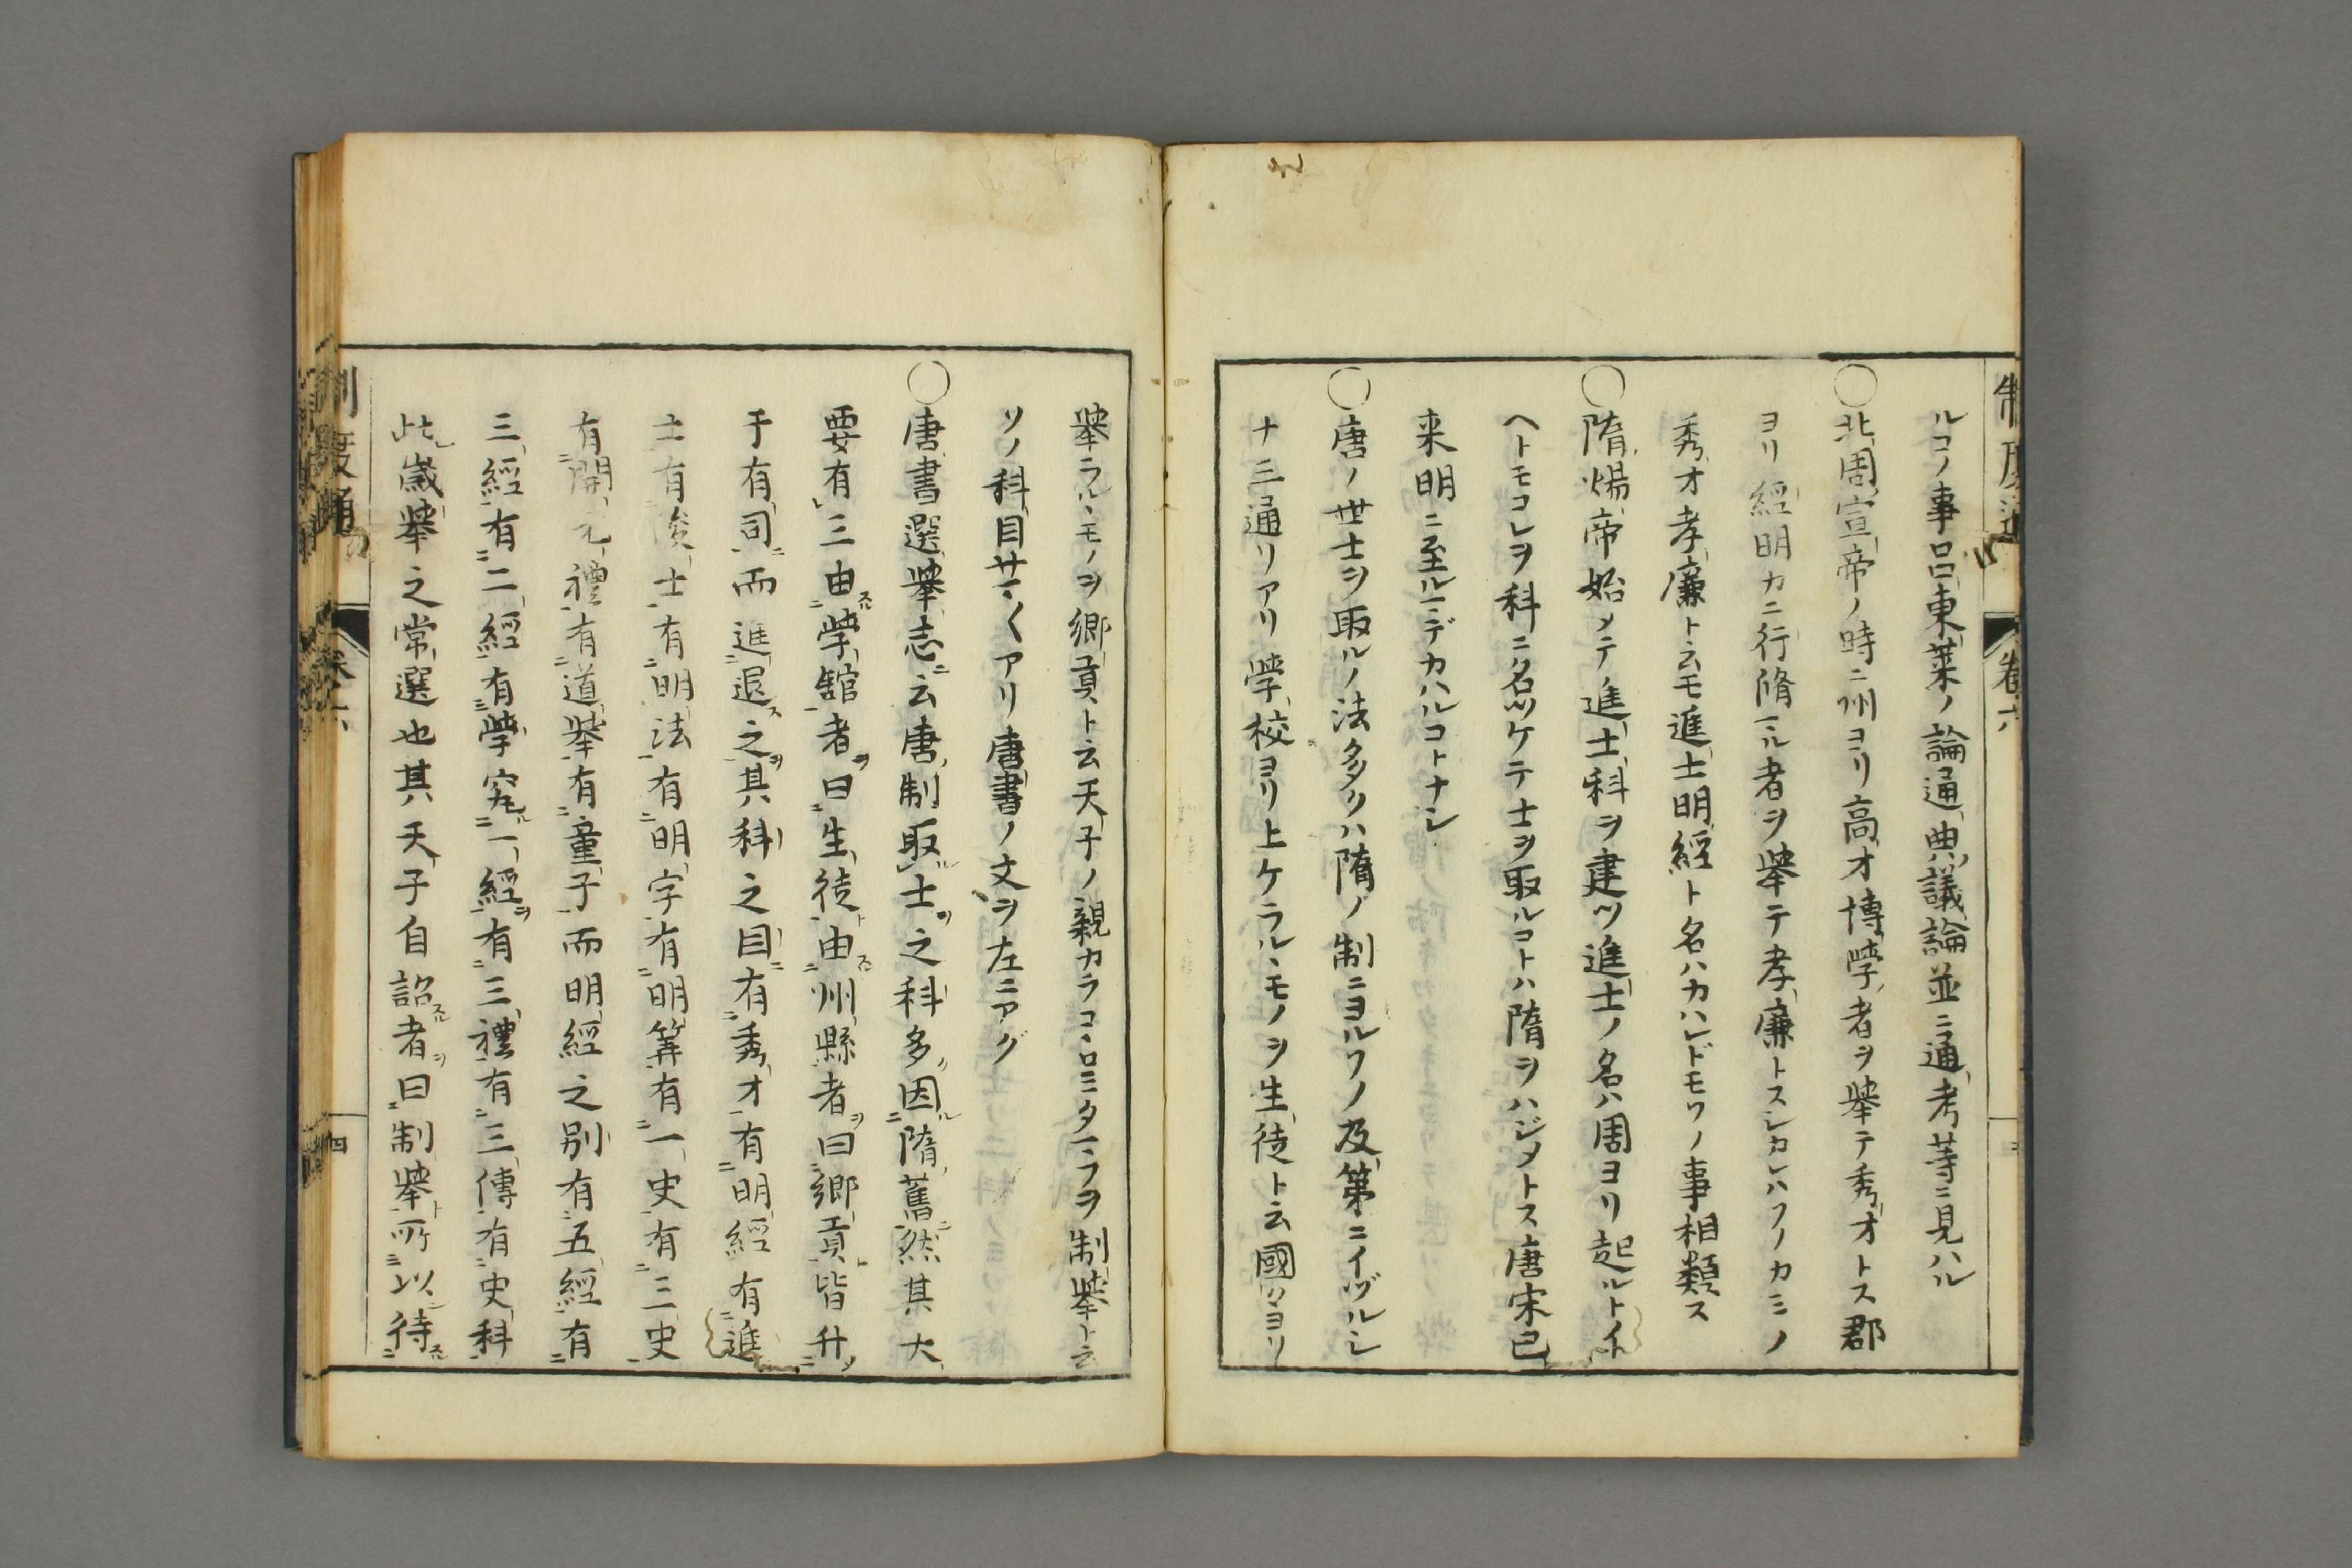 制度通 卷六
ルコノ事呂東萊ノ論通典議論並ニ通考等ニ見ハル
○北周宣帝ノ時ニ州ヨリ高才博學者ヲ舉テ秀才トス郡
ヨリ經明カニ行脩マル者ヲ舉テ孝廉トスシカレハソノカミノ
秀才孝廉ト云モ進士明經ト名ハカハレドモソノ事相類ス
○隋煬帝始メテ進士科ヲ建ツ進士ノ名ハ周ヨリ起ルトイ
ヘトモコレヲ科ニ名ツケテ士ヲ取ルコトハ隋ヲハジメトス唐宋已
来明ニ至ルマデカハルコトナシ
○唐ノ世士ヲ取ルノ法多クハ隋ノ制ニヨルソノ及第ニイヅルシ
ナ三通リアリ學校ヨリ上ケラルヽモノヲ生徒ト云國〳〵ヨリ
舉ラルヽモノヲ鄉貢ト云天子ノ親カラコヽロミタマフヲ制舉ト云
ソノ科目サマ〳〵アリ唐書ノ文ヲ左ニアグ
○唐書選舉志ニ云唐制取士之科多因隋舊然其大
要有三由學舘者曰生徒由州縣者曰鄉貢皆升
于有司而進退之其科之目有秀才有明經有進
士有俊士有明法有明字有明筭有一史有三史
有開元禮有道舉有童子而明經之別有五經有
三經有二經有學究一經有三禮有三傳有史科
此歲舉之常選也其天子自詔者曰制舉所以待
制度通 卷六 四